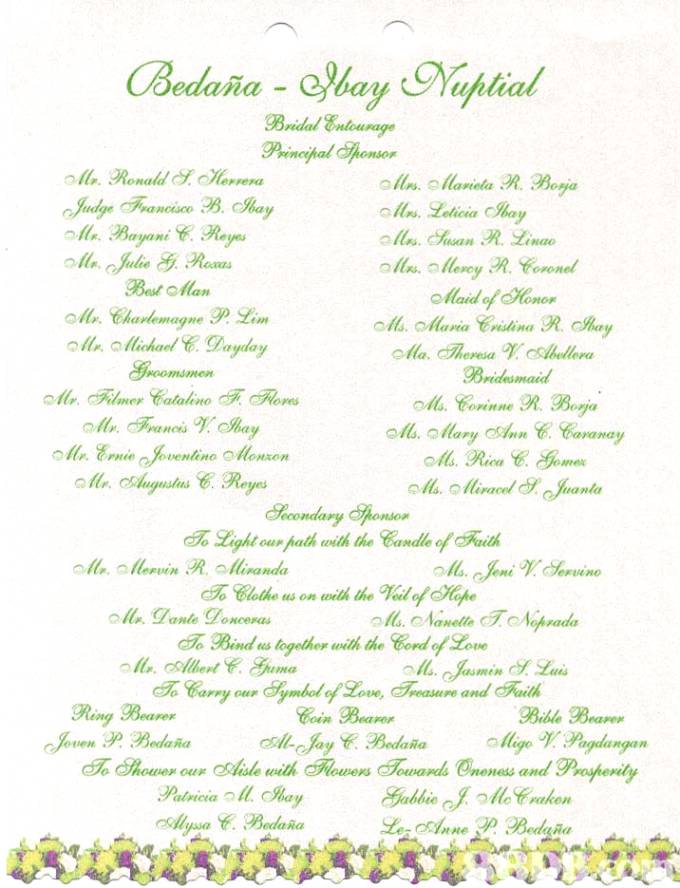 Bedaña - Ibay Nuptial
Bridal Entourage
Principal Sponsor
Mr. Ronald S. Herrera Mrs. Marieta R. Borja
Judge Francisco B. Ibay Mrs. Leticia Ibay
Mr. Bayani C. Reyes Mrs. Susan R. Linao
Mr. Julie G. Roxas Mrs. Mercy R. Coronel
Best Man Maid of Honor
Mr. Charlemagne P. Lim Ms. Maria Cristina R. Ibay
Mr. Michael C. Dayday Ma. Theresa V. Abellera
Groomsmen Bridesmaid
Mr. Filmer Catalino F. Flores Ms. Corinne R. Borja
Mr. Francis V. Ibay Ms. Mary Ann C. Caranay
Mr. Ernie Joventino Monzon Ms. Rica C. Gomez
Mr. Augustus C. Reyes Ms. Miracel S. Juanta
Secondary Sponsor
To Light our path with the Candle of Faith
Mr. Mervin R. Miranda Ms. Jeni V. Servino
To Clothe us on with the Veil of Hope
Mr. Dante Donceras Ms. Nanette T. Noprada
To Bind us together with the Cord of Love
Mr. Albert C. Guma Ms. Jasmin S. Luis
To Carry our Symbol of Love, Treasure and Faith
Ring Bearer Coin Bearer Bible Bearer
Joven P. Bedaña Al-Jay C. Bedaña Migo V. Pagdangan
To Shower our Aisle with Flowers Towards Oneness and Prosperity
Patricia M. Ibay Gabbie J. McCraken
Alyssa C. Bedaña Le-Anne P. Bedaña